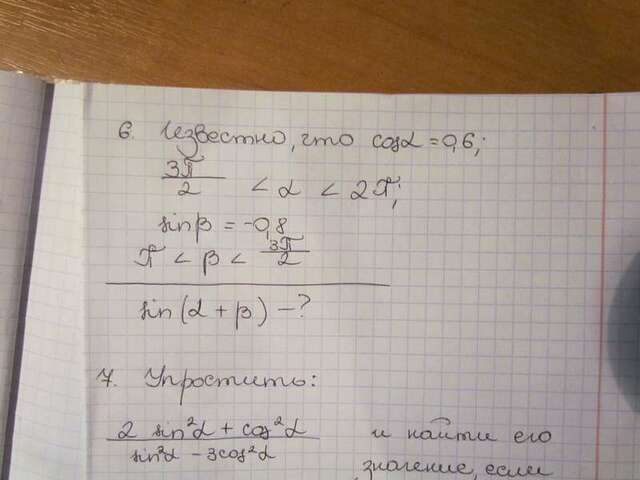 6. Известно, что cosα = 0,6;
3π/2 < α < 2π;
sinβ = -0,8
π < β < 3π/2
sin(α + β) - ?
7. Упростить:
2 sin²α + cos²α / sin²α - 3cos²α и найти его
значение, если